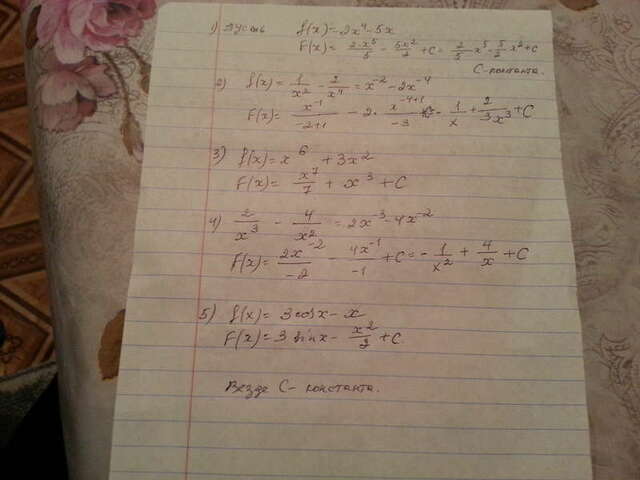 1) Пусть f(x) = 2x⁴ - 5x
F(x) = 2·x⁵/5 - 5x²/2 + C = 2/5 x⁵ - 5/2 x² + C
C - константа.
2) f(x) = 1/x² - 2/x⁴ = x⁻² - 2x⁻⁴
F(x) = x⁻¹/(-2+1) - 2 · x⁻⁴⁺¹/(-3) = - 1/x + 2/(3x³) + C
3) f(x) = x⁶ + 3x²
F(x) = x⁷/7 + x³ + C
4) 2/x³ - 4/x² = 2x⁻³ - 4x⁻²
F(x) = 2x⁻²/(-2) - 4x⁻¹/(-1) + C = - 1/x² + 4/x + C
5) f(x) = 3 cosx - x
F(x) = 3 sinx - x²/2 + C
Везде C - константа.